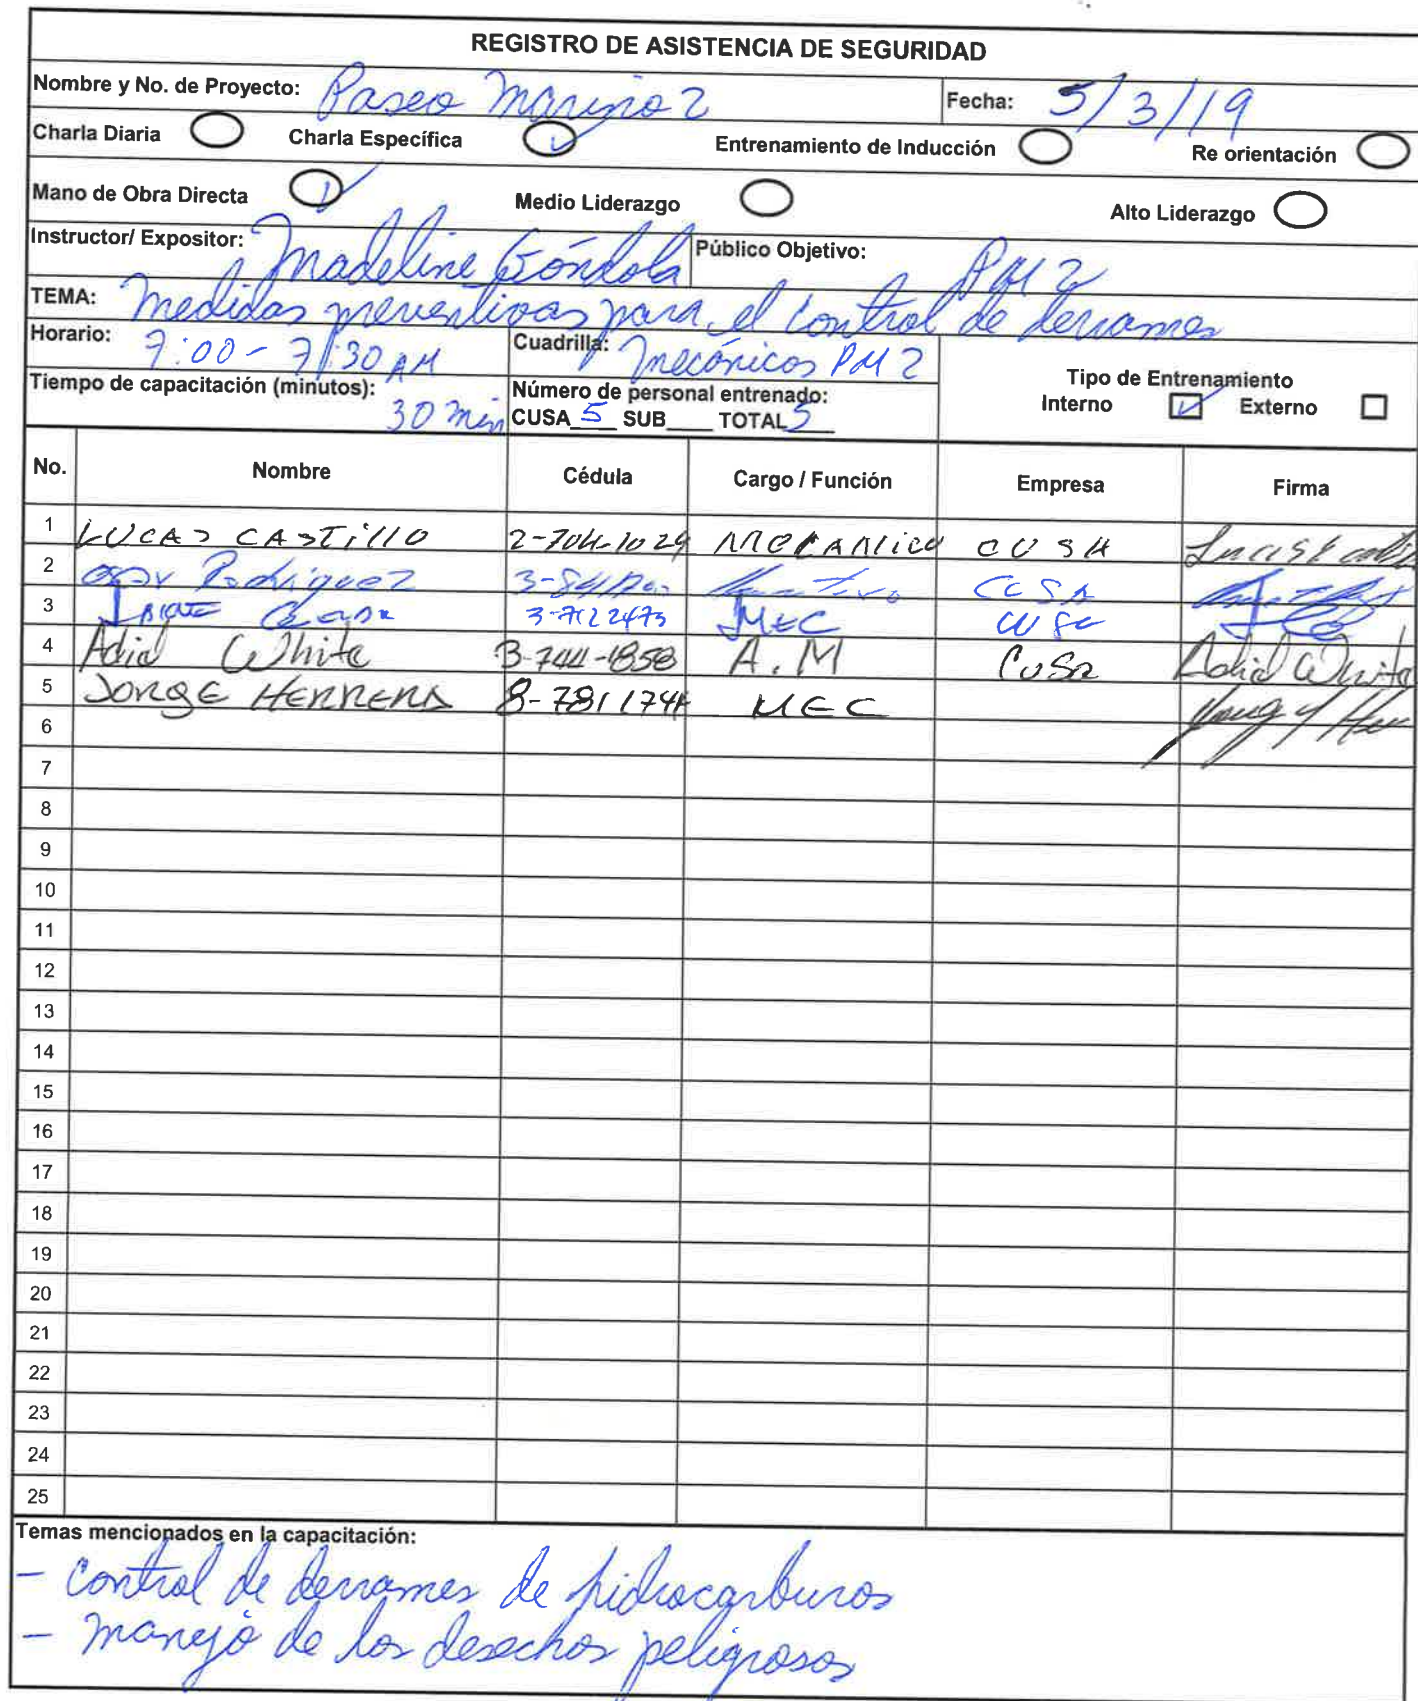 REGISTRO DE ASISTENCIA DE SEGURIDAD
Nombre y No. de Proyecto: Paseo Marino 2 Fecha: 5/3/19
Charla Diaria Charla Específica Entrenamiento de Inducción Re orientación
Mano de Obra Directa Medio Liderazgo Alto Liderazgo
Instructor/ Expositor: Madeline Góndola Público Objetivo: PM 2
TEMA: Medidas preventivas para el control de derrames
Horario: 7:00 - 7:30 AM Cuadrilla: Mecánicos PM 2
Tipo de Entrenamiento
Tiempo de capacitación (minutos): 30 min Número de personal entrenado:
CUSA 5 SUB TOTAL 5 Interno Externo
No. Nombre Cédula Cargo / Función Empresa Firma
1 LUCAS CASTillO 2-704-1029 MECANICO CUSA
2 Rodriguez CUSA
3 MEC
4 Adid White 3-744-1858 A.M CUSA Adid White
5 JORGE HERRERA 8-781 1744 MEC
6
7
8
9
10
11
12
13
14
15
16
17
18
19
20
21
22
23
24
25
Temas mencionados en la capacitación:
- Control de derrames de hidrocarburos
- Manejo de los desechos peligrosos